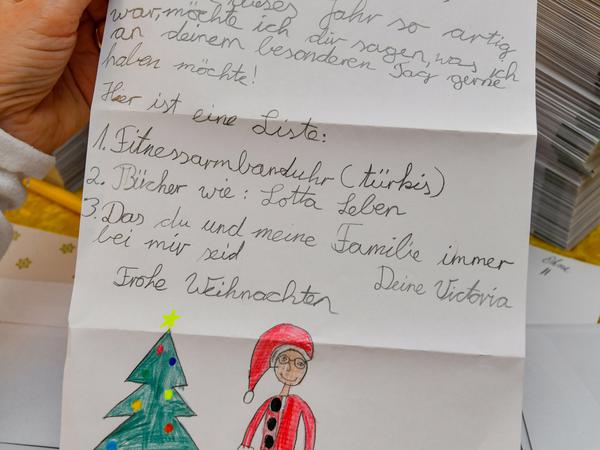 dieses Jahr so artig
war, möchte ich dir sagen, was ich
an deinem besonderen Tag gerne
haben möchte!
Hier ist eine Liste:
1. Fitnessarmbanduhr (türkis)
2. Bücher wie: Lotta Leben
3. Das du und meine Familie immer
bei mir seid
Deine Victoria
Frohe Weihnachten